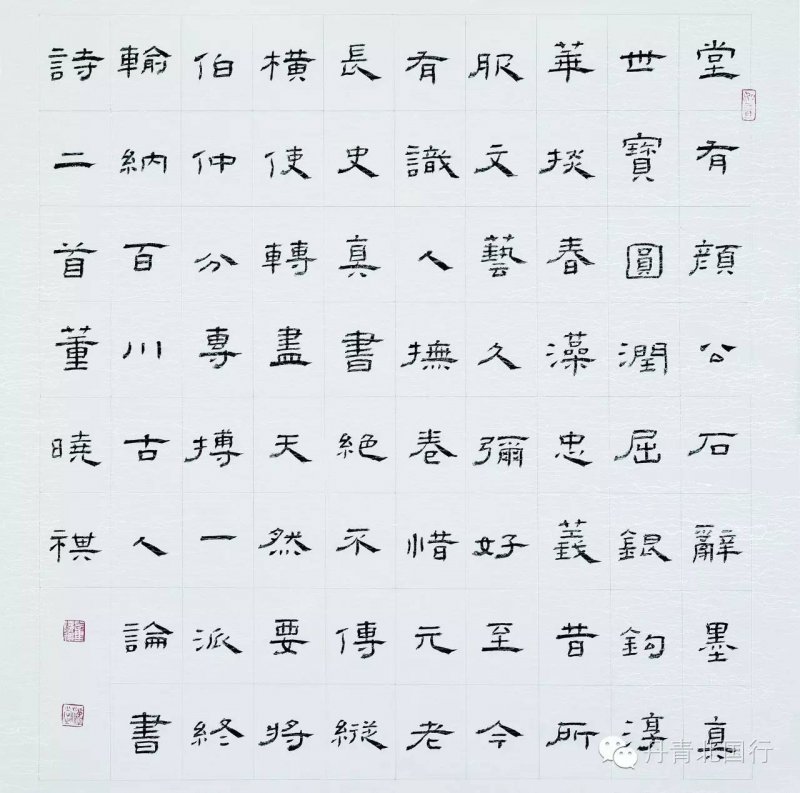 堂有顏公石辭墨真
世寶圓潤屈銀鉤淳
華掞春藻忠義昔所
服文藝久彌好至今
有識人撫卷惜元老
長史真書絕不傳縱
橫使轉盡天然要將
伯仲分專摶一派終
輸納百川古人論書
詩二首董曉祺
丹青北国行